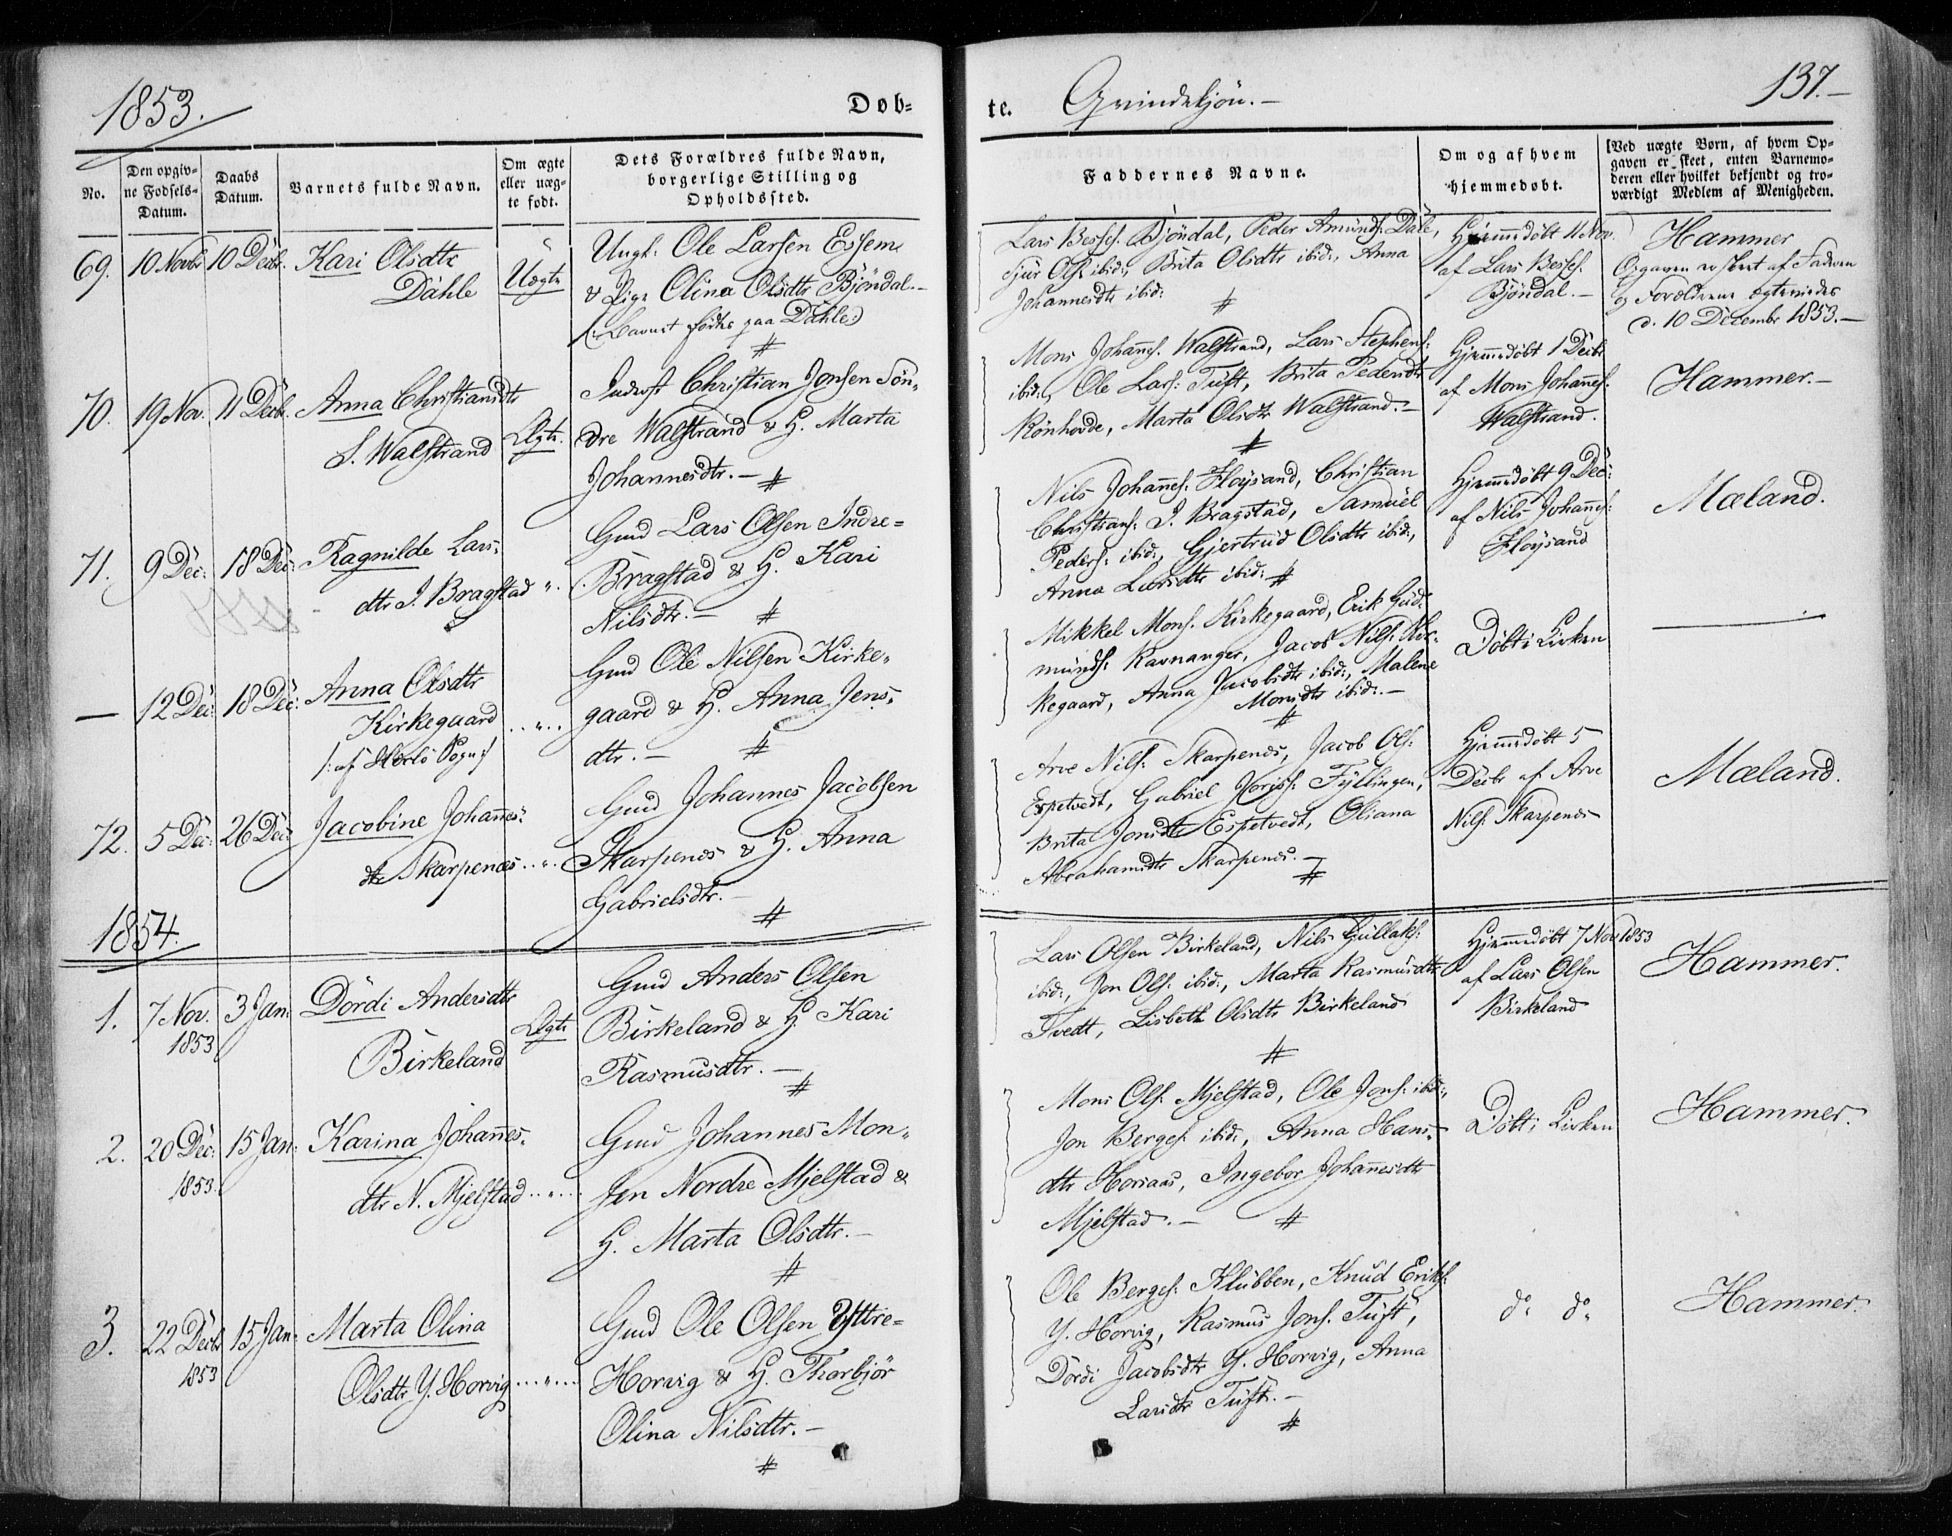 1853.
Døb-
te. Qvindekjøn.-
137.-
No.
Den opgiv-
ne Fødsels-
Datum.
Daabs
Datum.
Barnets fulde Navn.
Om ægte
eller uæg-
te født.
Dets Forældres fulde Navn,
borgerlige Stilling og
Opholdssted.
Faddernes Navne.
Om og af hvem
hjemmedøbt.
[Ved uægte Børn, af hvem Op-
gaven er skeet, enten Barnemo-
deren eller hvilket bekjendt og tro-
værdigt Medlem af Menigheden.
69. 10 Novbr 10 Decbr. Kari Olsdtr
Dahle
Uægte
Ungk: Ole Larsen Essem
& Pige Olina Olsdtr Bjöndal.-
(:Barnet fødte paa Dahle:)
#
Lars Besses. Bjöndal, Peder Amunds. Dale,
Sjur Ols. ibid:, Brita Olsdtr ibid:, Anna
Johannesdtr ibid:
#
Hjemmedøbt 11 Nov.
af Lars Besses.
Bjöndal.-
Hammer
Opgaven er skeet af Faderen
og Forældrene ægteviedes
d. 10 Decembr 1853.-
70. 19 Nov. 11 Decbr. Anna Christiansdtr
S. Walstrand
Ægte.
Inderst Christian Jonsen Søn-
dre Walstrand & H. Marta
Johannesdtr.-
#
Mons Johannes. Walstrand, Lars Stephens:
ibid:, Ole Lars: Tuft, Brita Pedersdtr
Rönhovde, Marta Olsdtr Walstrand.-
#
Hjemmedøbt 1 Decbr
af Mons Johannes.
Walstrand.
Hammer.-
71. 9 Dec: 18 Dec: Ragnilde Lars-
dtr I. Bragstad "
Gmd Lars Olsen Indre-
Bragstad & H. Kari
Nilsdtr.-
#
Nils Johannes. Fløysand, Christian
Christians: I. Bragstad, Samuel
Peders: ibid:, Gjertrud Olsdtr ibid:,
Anna Larsdtr ibid:
#
Hjemmedøbt 9 Dec:
af Nils Johannes:
Fløysand
Mæland.
- 12 Dec: 18 Dec: Anna Olsdtr
Kirkegaard
/: af Herlö Sogn:/
"
Gmd Ole Nilsen Kirke-
gaard & H. Anna Jens-
dtr.-
#
Mikkel Mons. Kirkegaard, Erik Gud-
munds: Ravnanger, Jacob Nils: Kir-
kegaard, Anna Jacobsdtr ibid:, Malene
Monsdtr ibid:.-
#
Døbt i Kirken
72. 5 Dec: 26 Dec: Jacobine Johannes-
dtr Skarpenes "
Gmd Johannes Jacobsen
Skarpenes & H. Anna
Gabrielsdtr.-
#
Arve Nils: Skarpenes, Jacob Ols:
Espetvedt, Gabriel Fyllingen,
Brita Jonsdtr Espetvedt, Oliana
Abrahamsdtr Skarpenes.-
#
Hjemmedøbt 5
Decbr af Arve
Nils: Skarpenes
Mæland.
1854.
1. 7 Nov.
1853
3 Jan: Dördi Andersdtr
Birkeland
Ægte
Gmd Anders Olsen
Birkeland & H. Kari
Rasmusdtr.-
#
Lars Olsen Birkeland, Nils Gullaks:
ibid:, Jon Ols: ibid:, Marta Rasmusdtr
Tvedt, Lisbeth Olsdtr Birkeland
#
Hjemmedøbt 7 Nov 1853
af Lars Olsen
Birkeland
Hammer.
2. 20 Dec:
1853.
15 Jan: Karina Johannes-
dtr N. Mjelstad "
Gmd Johannes Mon-
sen Nordre Mjelstad &
H. Marta Olsdtr.-
#
Mons Ols: Mjelstad, Ole Jons: ibid:,
Jon Berges: ibid:, Anna Hans-
dtr Horsaas, Ingebor Johannesdtr
Mjelstad.-
#
Døbt i Kirken
Hammer.
3. 22 Decbr
1853
15 Jan: Marta Olina
Olsdtr Y. Horvig "
Gmd Ole Olsen Yttre-
Horvig & H. Thorbjør
Olina Nilsdtr.-
#
Ole Berges: Klubben, Knud Eriks:
Y. Horvig, Rasmus Jons: Tuft,
Dördi Jacobsdtr Y. Horvig, Anna
Larsdtr Tuft.-
#
do do
Hammer.